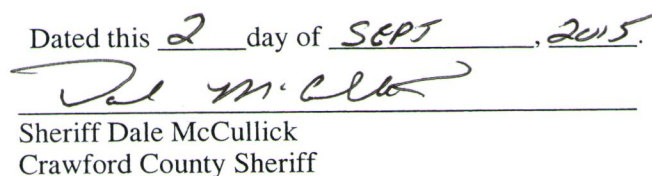 Dated this 2 day of SEPT, 2015.
Dale McCullick
Sheriff Dale McCullick
Crawford County Sheriff